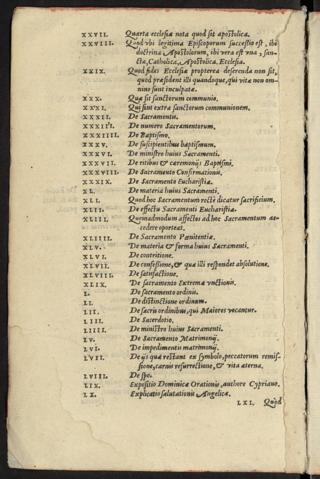 XXVII. Quarta ecclesiæ nota quod sit apostolica.
XXVIII. Quod vbi legitima Episcoporum successio est, ibi
doctrina Apostolorum, ibi vera est vna, san-
cta, Catholica, Apostolica, Ecclesia.
XXIX. Quod fides Ecclesiæ propterea deserenda non sit,
quod præsident illi quandoque, qui vita non om-
nino sunt inculpata.
XXX. Quæ sit sanctorum communio.
XXXI. Qui sint extra sanctorum communionem.
XXXII. De Sacramentis.
XXXIII. De numero Sacramentorum.
XXXIIII. De Baptismo.
XXXV. De suscipientibus baptismum.
XXXVI. De ministro huius Sacramenti.
XXXVII. De ritibus & cæremonijs Baptismi.
XXXVIII. De Sacramento Confirmationis.
XXXIX. De Sacramento Eucharistiæ.
XL. De materia huius Sacramenti.
XLI. Quod hoc Sacramentum recte dicatur sacrificium.
XLII. De effectu Sacramenti Eucharistiæ.
XLIII. Quemadmodum affectos ad hoc Sacramentum ac-
cedere oporteat.
XLIIII. De Sacramento Pœnitentiæ.
XLV. De materia & forma huius Sacramenti.
XLVI. De contritione.
XLVII. De confessione, & quæ illi respondet absolutione.
XLVIII. De satisfactione.
XLIX. De sacramento Extremæ vnctionis.
L. De sacramento ordinis.
LI. De distinctione ordinum.
LII. De sacris ordinibus, qui Maiores vocantur.
LIII. De Sacerdotio.
LIIII. De ministro huius Sacramenti.
LV. De Sacramento Matrimonij.
LVI. De impedimentis matrimonij.
LVII. De ijs quæ restant ex symbolo, peccatorum remis-
sione, carnis resurrectione, & vita æterna.
LVIII. De spe.
LIX. Expositio Dominicæ Orationis, authore Cypriano.
LX. Explicatio salutationis Angelicæ.
LXI. Quod